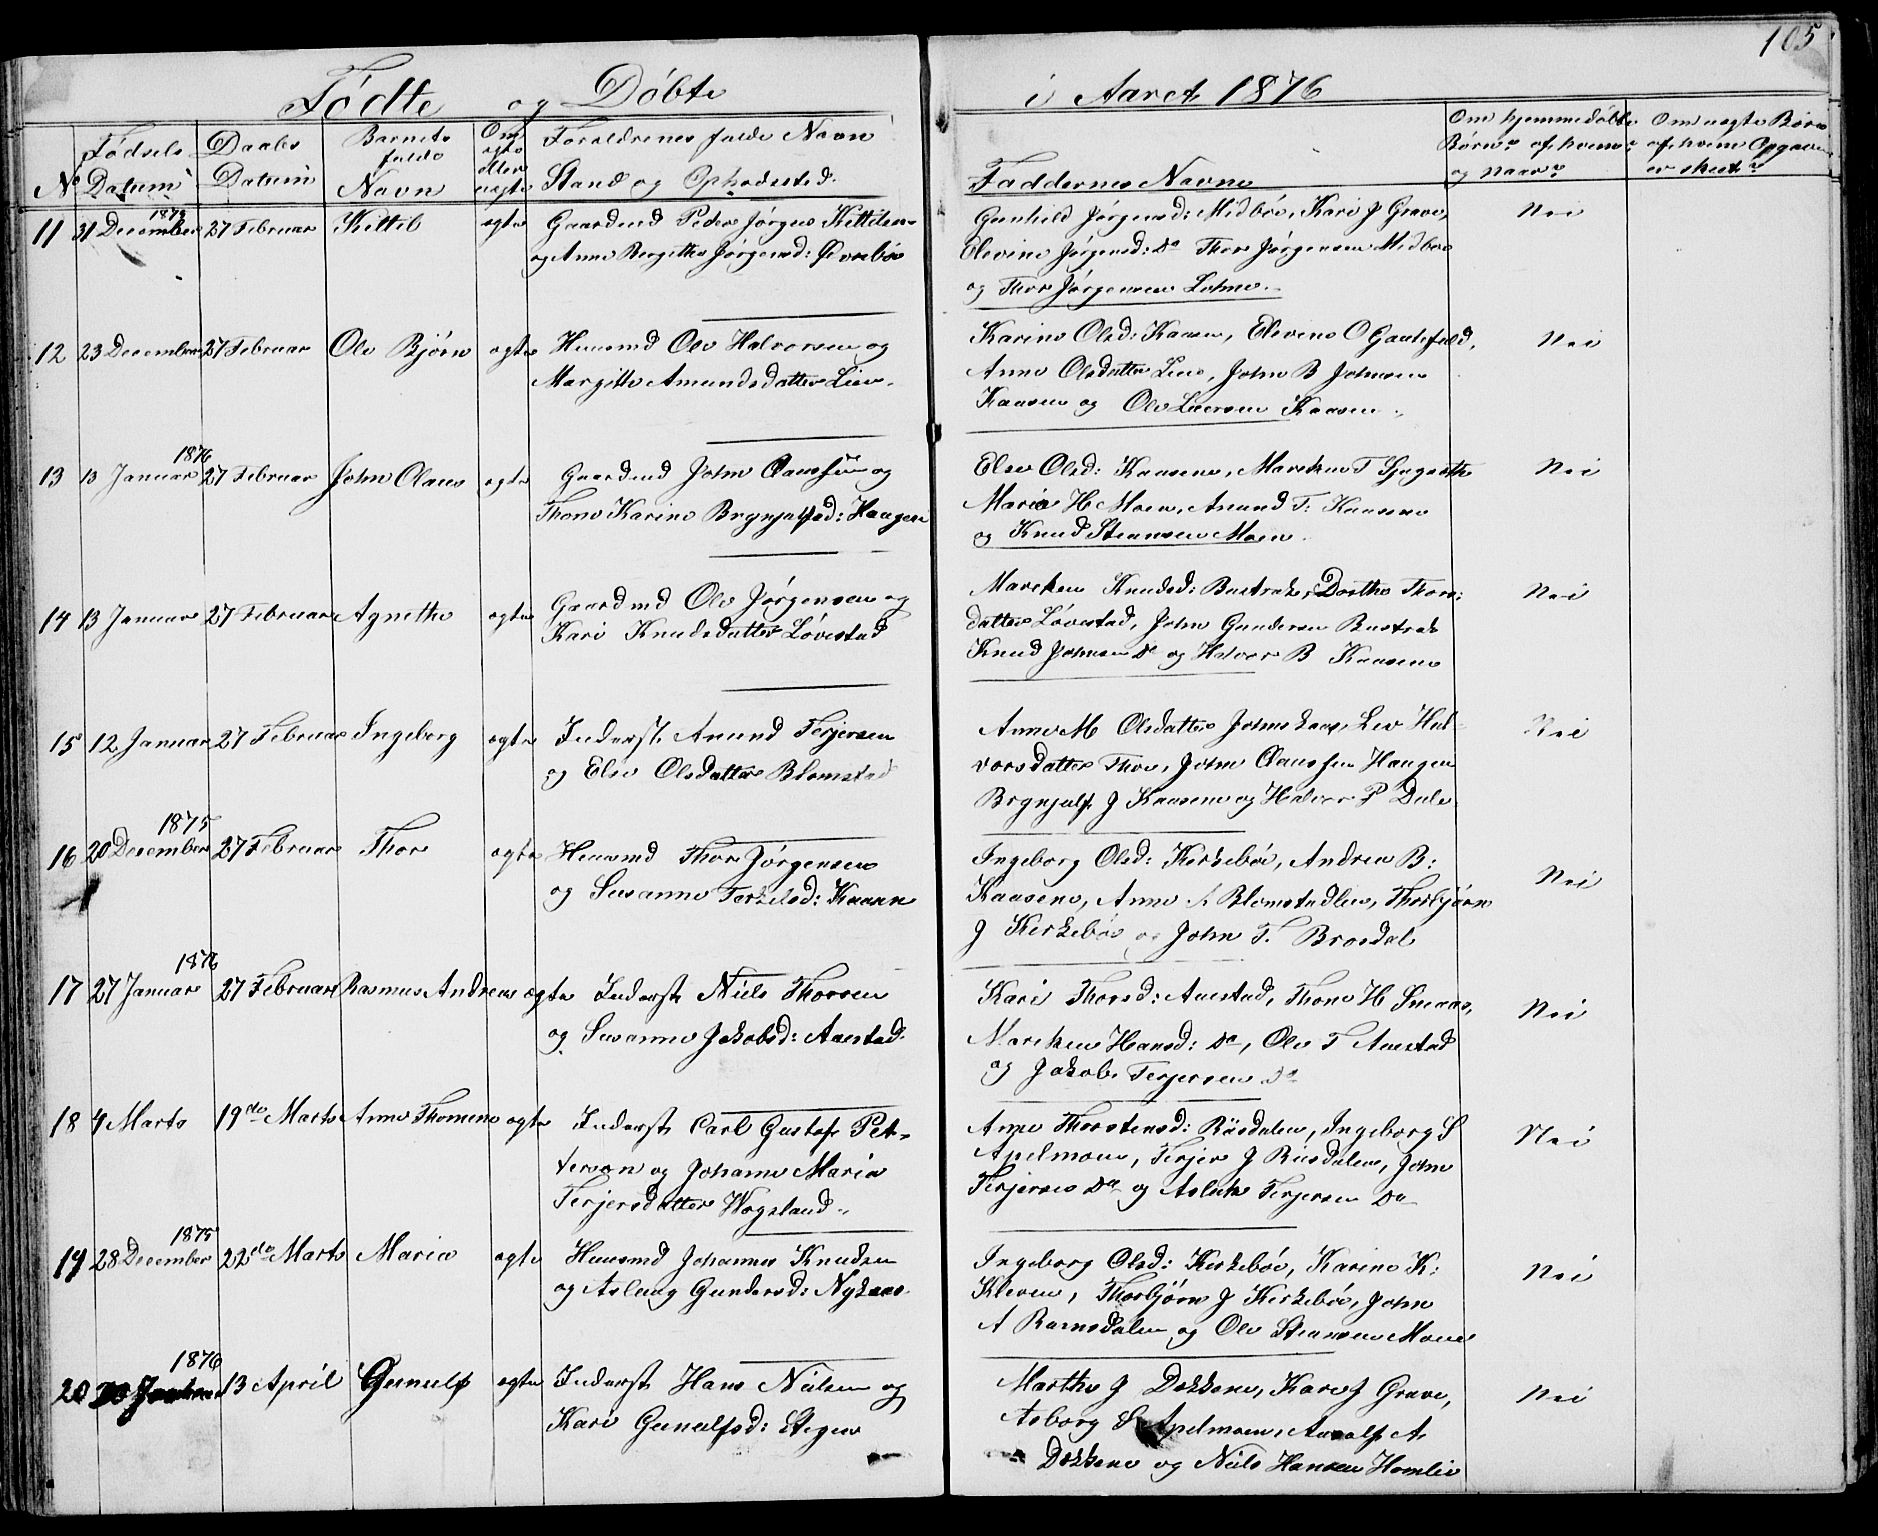 105
Fødte og Døbte i Aaret 1876
No
Fødsels Datum
Daabs Datum
Barnets fulde Navn
Om ægte eller uægte
Forældrenes fulde Navn
Stand og Opholdssted.
Faddernes Navne
Om hjemmedøbte Børn af hvem og naar
Om uægte Børn af hvem Opgaven er skeet
1875
11 31 December 27 Februar Kittil ægte Gaardmd Peder Jørgen Kittilsen
og Anne Birgithe Jørgensd: Øvrebøe
Gunhild Jørgensd: Midbøe, Kari J Grave,
Elevine Jørgensd: Do Thor Jørgensen Midbøe
og Thor Jørgensen Lohne.
Nei
12 23 December 27 Februar Ole Bjørn ægte Huusmd Ole Halvorsen og
Margitte Amundsdatter Lien.
Karine Olsd: Kaasen, Elevine O Gautefald,
Anne Olsdatter Lien, John B Johnsen
Kaasen og Ole Larsen Kaasen.
Nei
1876
13 13 Januar 27 Februar John Claus ægte Gaardmd John Claussen og
Thone Karine Brynjulfsd: Haugen
Else Olsd: Kaasene, Mareken T
Maria H Moen, Amund T: Kaasene
og Knud Steansen Moen.
Nei
14 13 Januar 27 Februar Agnethe ægte Gaardmd Ole Jørgensen og
Kari Knudsdatter Løvestad
Mareken Knudsd: Bustrak, Dorthe Thors-
datter Løvestad, John Gundersen Bustrak
Knud Johnsen Do og Halvor B Kaasene
Nei
15 12 Januar 27 Februar Ingeborg ægte Inderst Amund Terjersen
og Else Olsdatter Blomstad
Anne M Olsdatter Johnskaas, Liv Hal-
vorsdatter Thoe, John Claussen Haugen
Brynjulf J Kaasene og Halvor P Dale
Nei
1875
16 20 December 27 Februar Thor ægte Huusmd Thor Jørgensen
og Susanne Terkelsd: Kaasen
Ingeborg Olsd: Kirkebøe, Andrea B:
Kaasene, Anne A Blomstadlien, Thorbjørn
J Kirkebøe og John T. Brosdal
Nei
1876
17 27 Januar 27 Februar Rasmus Andreas ægte Inderst Niels Thorsen
og Susanne Jakobsd: Aaestad.
Kari Thorsd: Aaestad, Thone H Sneaas,
Mareken Hansd: Do, Ole T Aaestad
og Jakob Terjersen Do
Nei
18 4 Marts 19de Marts Anne Thomine ægte Inderst Carl Gustaf Pet-
terson og Johanne Maria
Terjersdatter Vogsland.
Anne Thorstensd: Riisdalen, Ingeborg S
Apelmoen, Terjer J Riisdalen, John
Terjersen Do og Aslak Terjersen Do
Nei
1875
19 28 December 22de Marts Maria ægte Huusmd Johannes Knudsen
og Aslaug Gundersd: Nykaas.
Ingeborg Olsd: Kirkebøe, Karine K:
Kleven, Thorbjørn J Kirkebøe, John
A Ramsdalen og Ole Steansen Moen
Nei
1876
20 Januar 13 April Gunulf ægte Inderst Hans Nielsen og
Kari Gunulfsd: Stigen
Marthe J Dokkene, Kari J Grave,
Asborg S Apelmoen, Anulf A
Dokkene og Niels Hansen Homlie
Nei